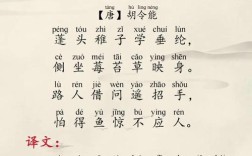 táng hú lìng néng
【唐】胡令能
péng tóu zhì zǐ xué chuí lún
蓬头稚子学垂纶，
cè zuò méi tái cǎo yìng shēn
侧坐莓苔草映身。
lù rén jiè wèn yáo zhāo shǒu
路人借问遥招手，
pà dé yú jīng bú yìng rén
怕得鱼惊不应人。
译文：